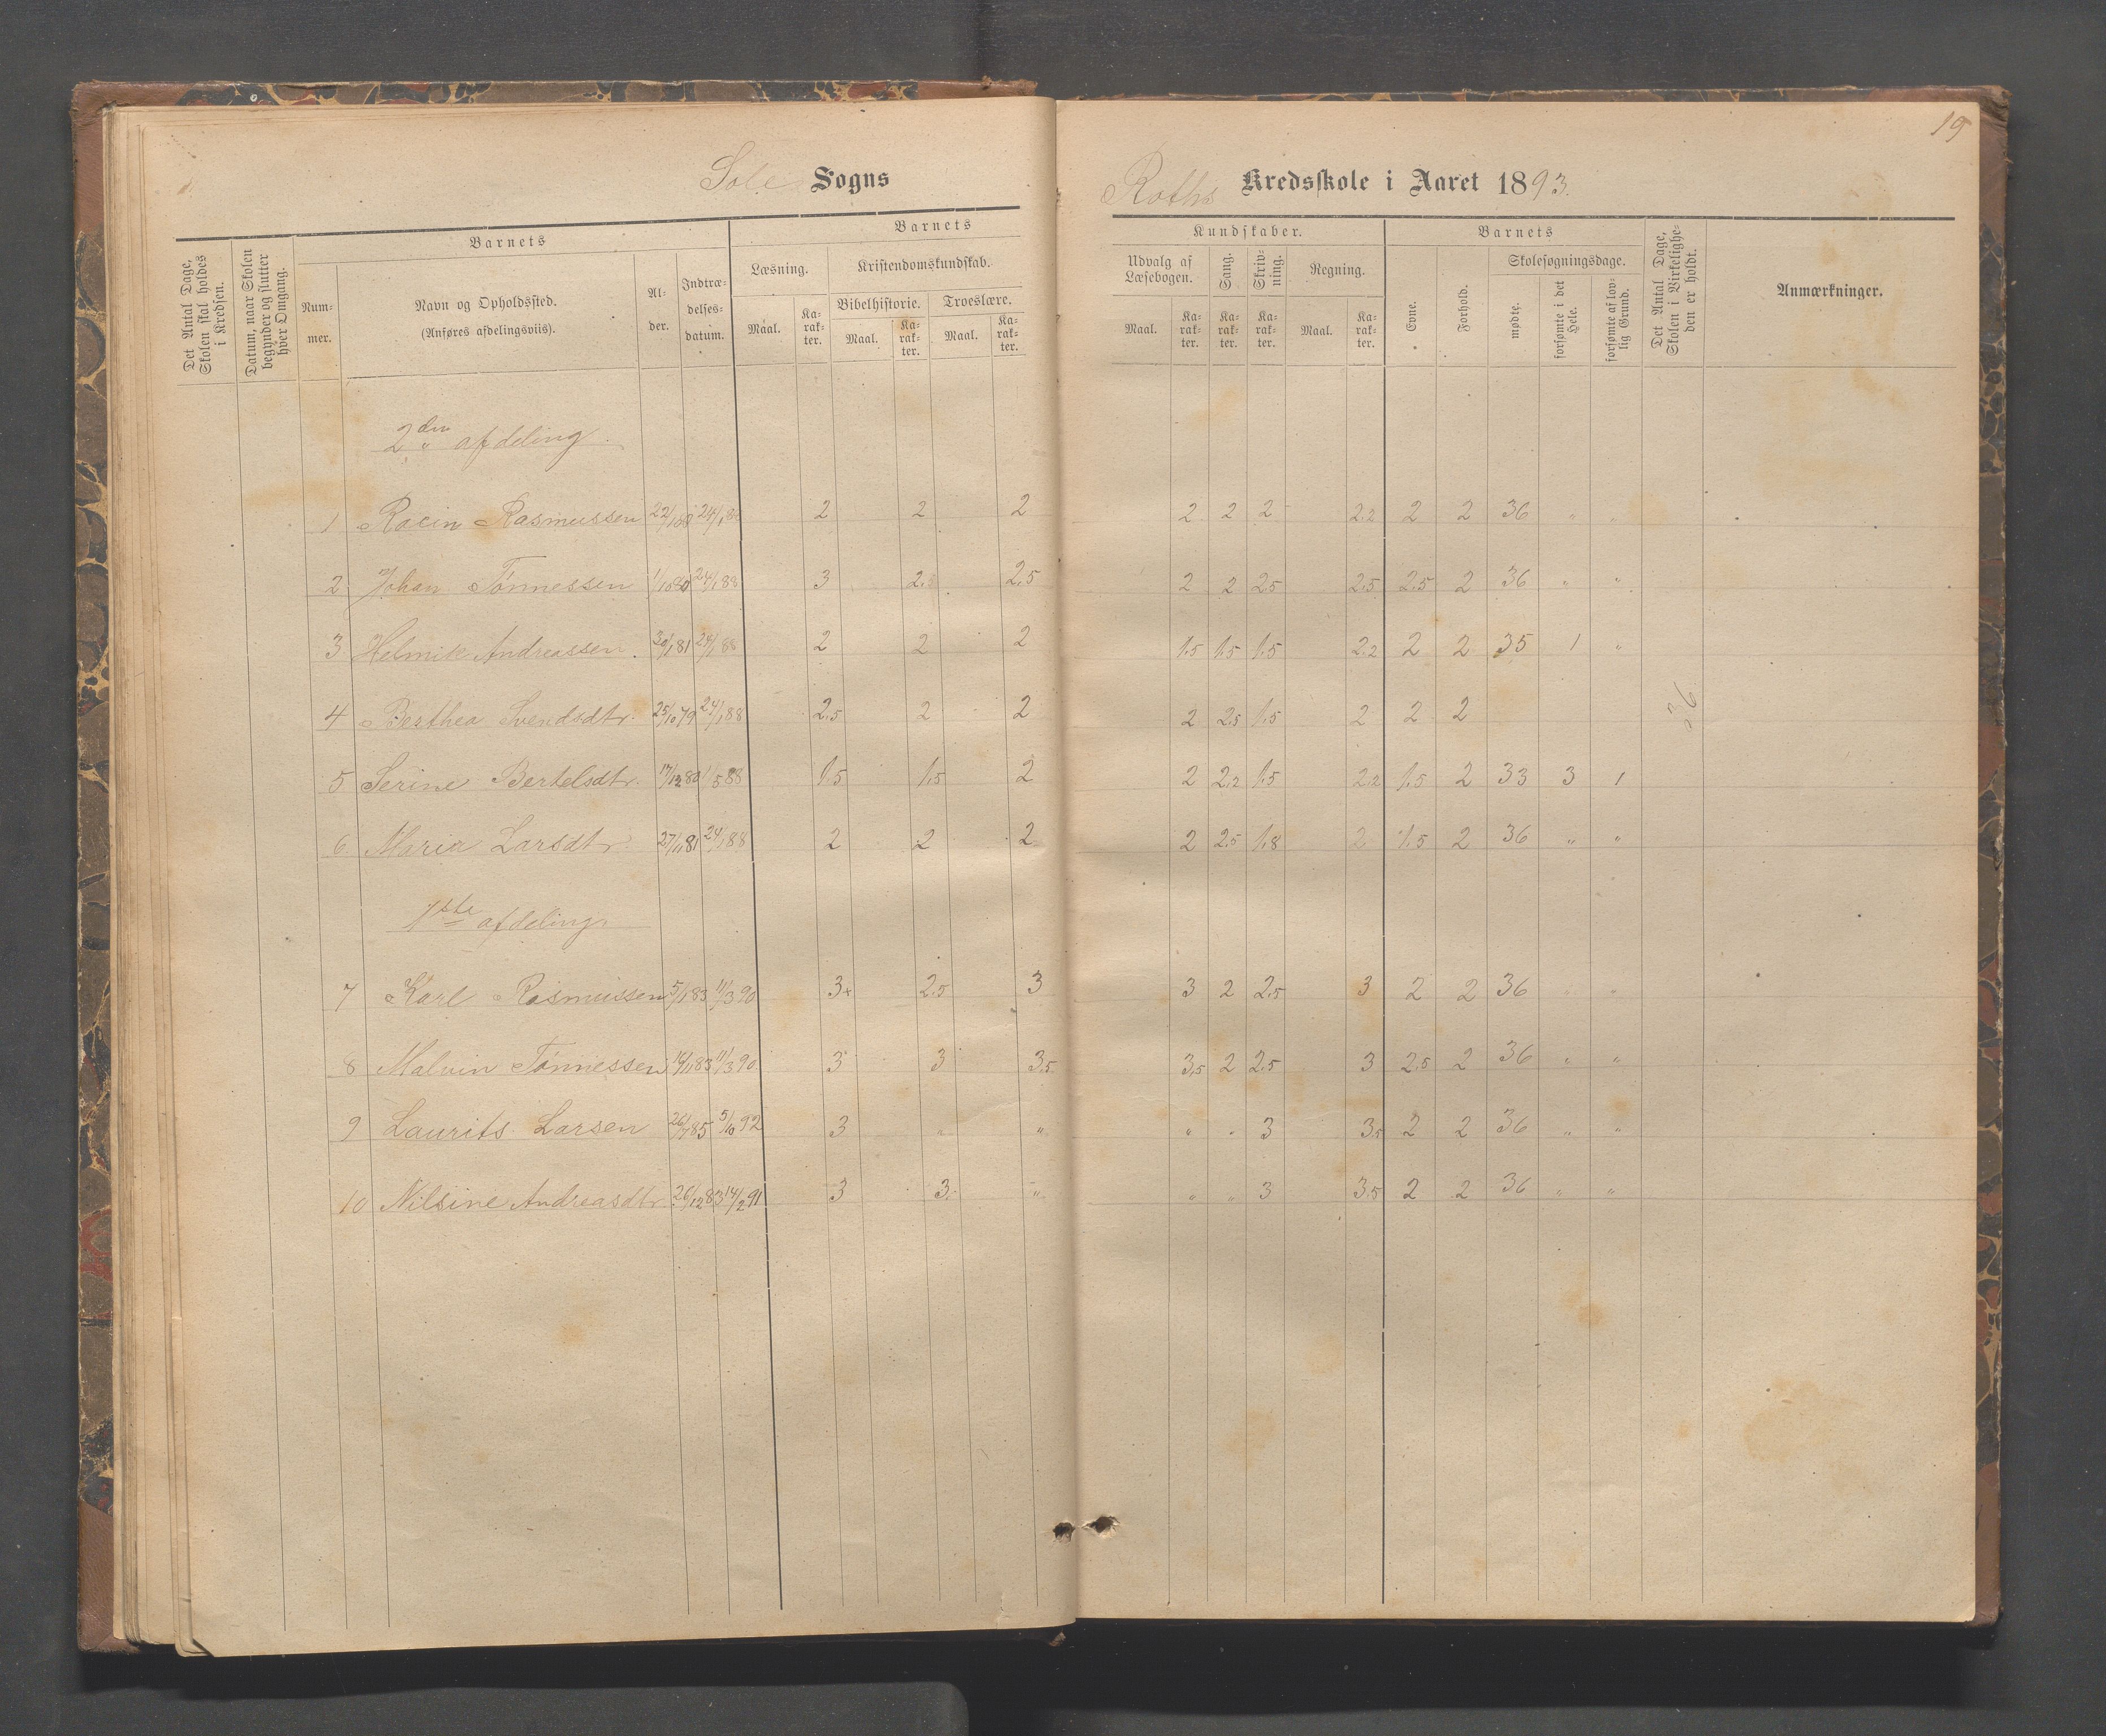 19
Sole Sogns
Roths Kredsskole i Aaret 1893.
Det Antal Dage, Skolen skal holdes i Kredsen.
Datum, naar Skolen begynder og slutter hver Omgang.
Barnets
Num- mer.
Navn og Opholdssted.
(Anføres afdelingsviis).
Al- der.
Indtræ- delses- datum.
Barnets
Læsning.
Maal.
Ka- rak- ter.
Kristendomskundskab.
Bibelhistorie.
Maal.
Ka- rak- ter.
Troeslære.
Maal.
Ka- rak- ter.
Kundskaber.
Udvalg af Læsebogen.
Maal.
Ka- rak- ter.
Sang.
Ka- rak- ter.
Skriv- ning.
Ka- rak- ter.
Regning.
Maal.
Ka- rak- ter.
Barnets
Evne.
Forhold.
Skolesøgningsdage.
mødte.
forsømte i det Hele.
forsømte af lov- lig Grund.
Det Antal Dage, Skolen i Virkelighe- den er holdt.
Anmærkninger.
2den afdeling.
1 Racin Rasmussen 24/1 88 2 2 2 2 2 2 2.2 2 2 36 " "
2 Johan Tönnessen 1/10 80 24/1 88 3 2.5 2,5 2 2 2.5 2.5 2.5 2 36 " "
3 Helmik Andreassen. 30/1 81 24/1 88 2 2 2 1.5 1.5 1.5 2.2 2 2 35 1 "
4 Berthea Svendsdtr. 25/10 79 24/1 88 2.5 2 2 2 2.5 1.5 2 2 2
36
5 Serine Bertelsdtr. 17/12 80 1/5 88 1.5 1.5 2 2 2.2 1.5 2.2 1.5 2 33 3 1
6 Maria Larsdtr. 27/1 81 24/1 88 2 2 2 2 2.5 1.8 2 1.5 2 36 " "
1ste afdeling
7 Karl Rasmussen 5/1 83 11/3 90 3+ 2.5 3 3 2 2.5 3 2 2 36 " "
8 Malvin Tönnessen 11/3 90. 3 3 3.5 3.5 2 2.5 3 2.5 2 36 " "
9 Laurits Larsen 26/7 85 5/10 92 3 " " " " 3 3.5 2 2 36 " "
10 Nilsine Andreasdtr. 26/12 83 14/2 91 3 3. " " " 3 3.5 2 2 36 " "